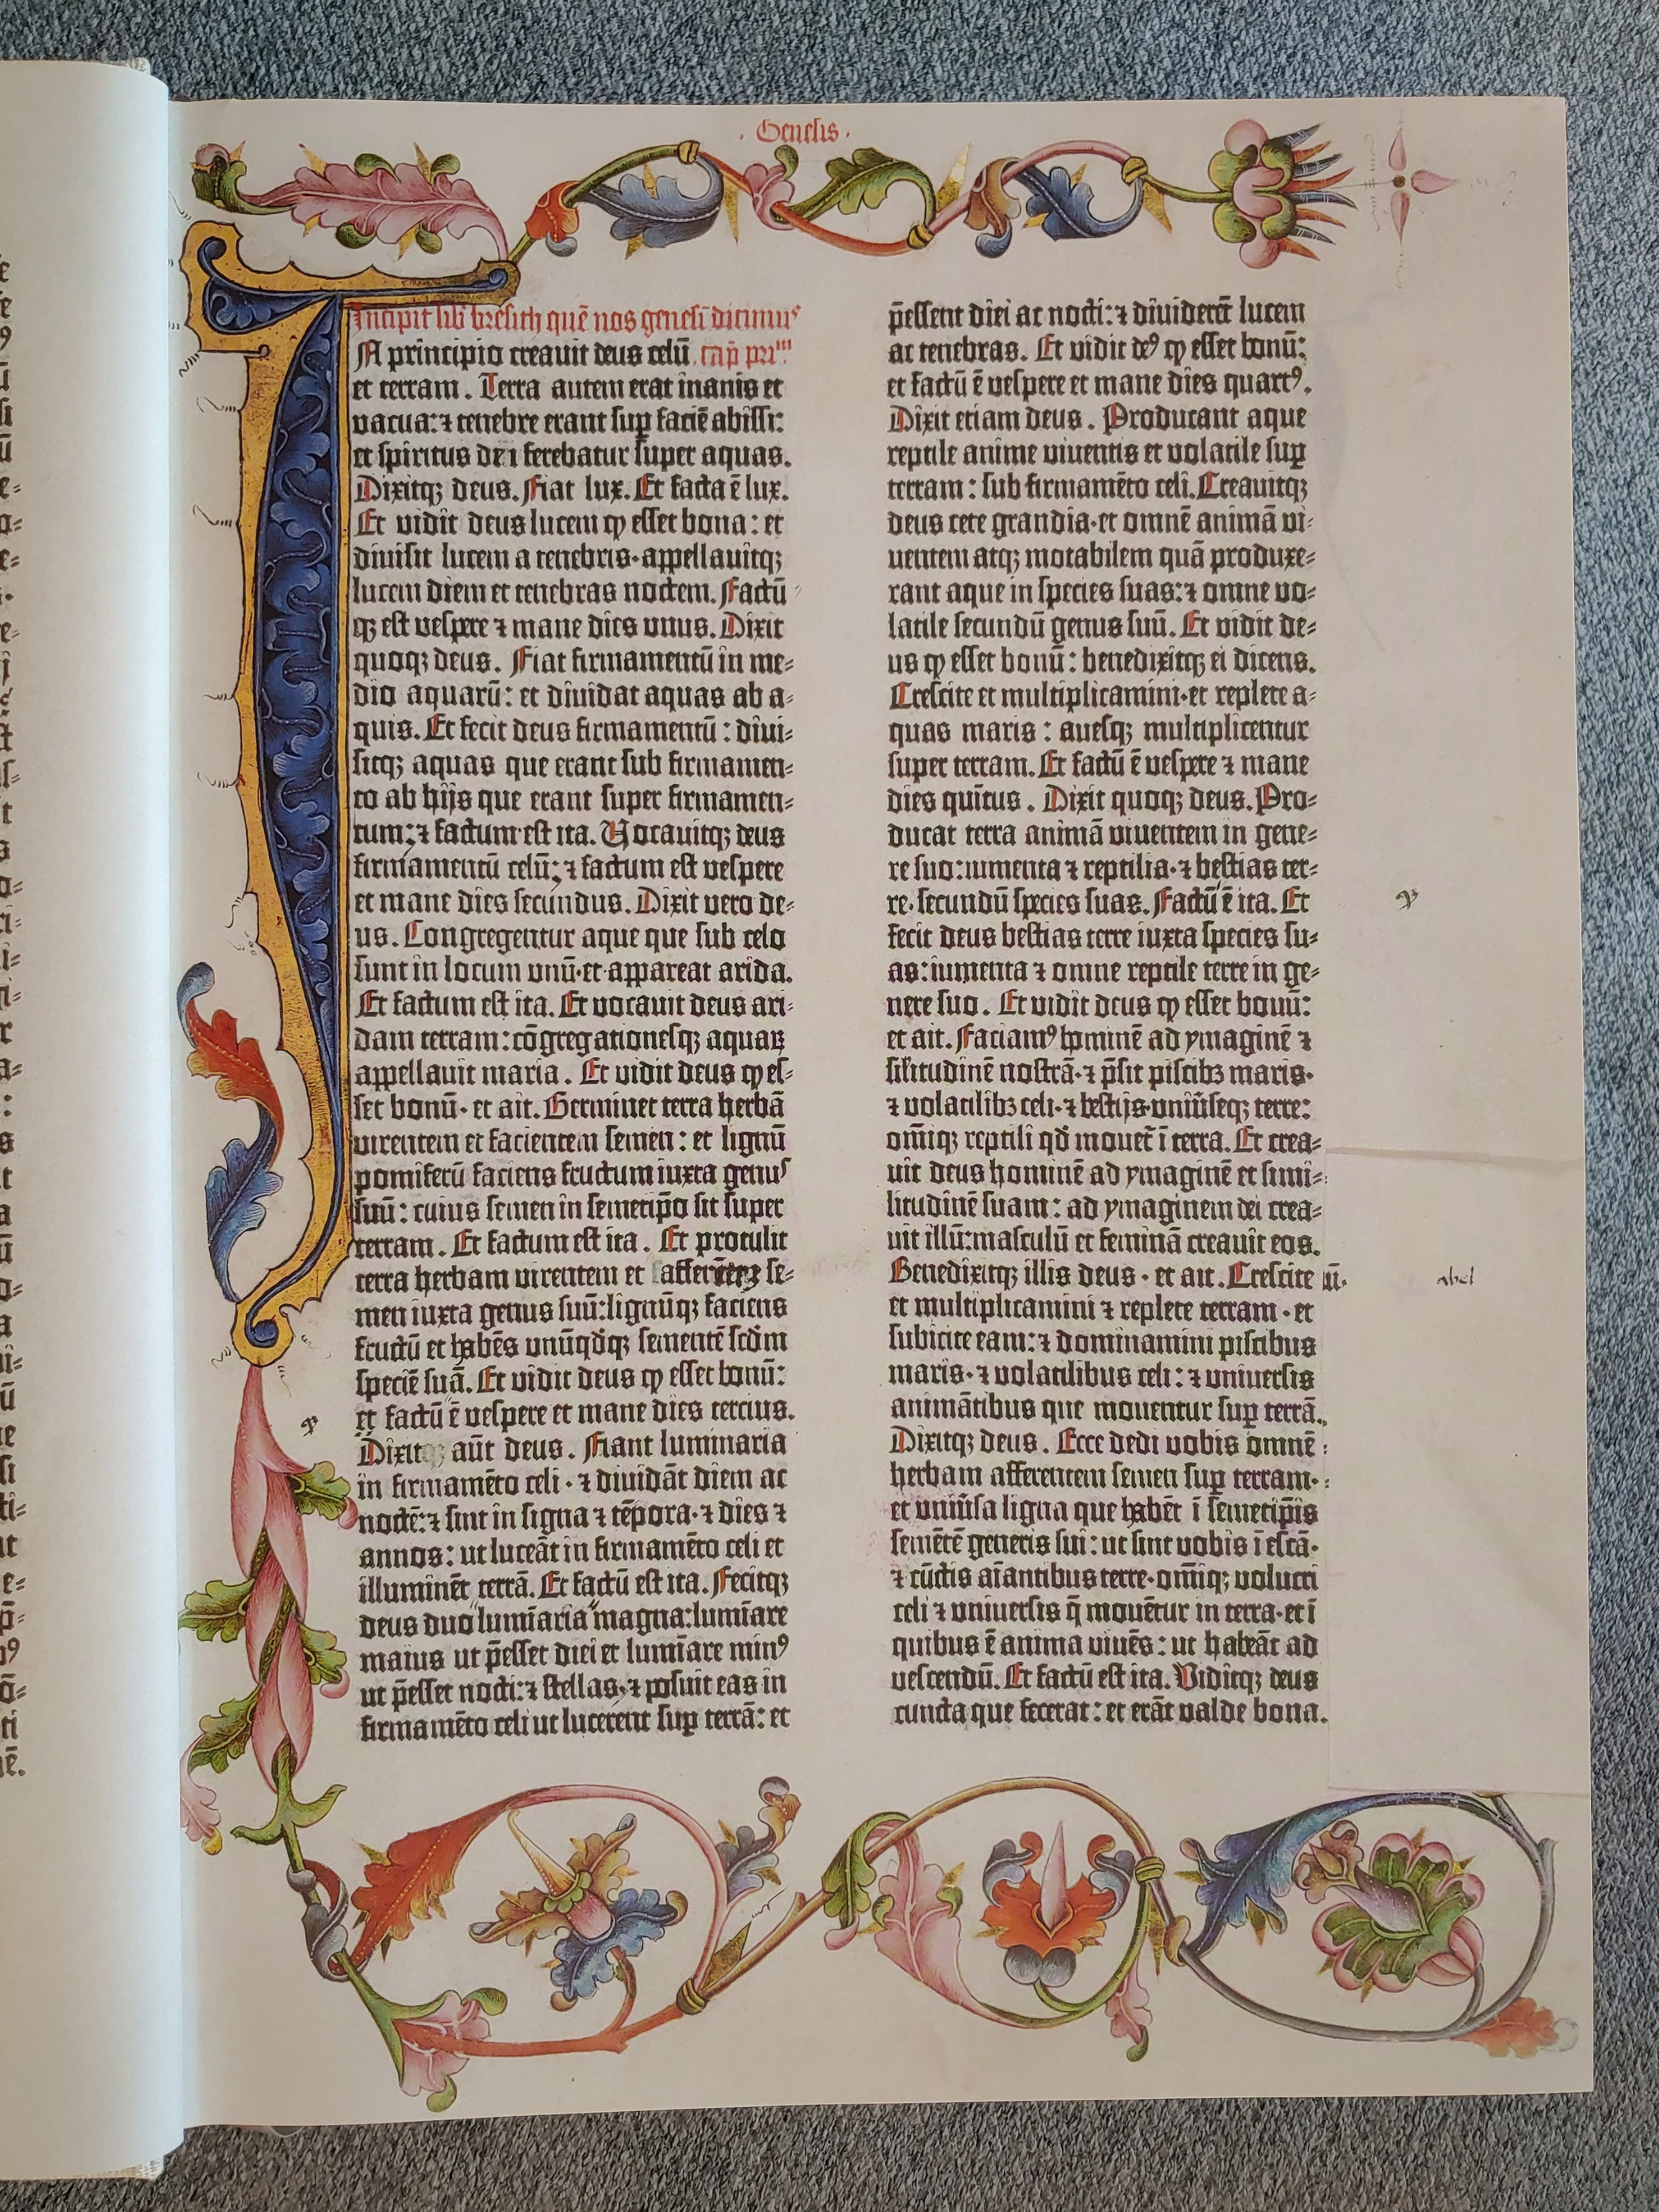 · Genesis ·
Incipit lib̄ bresith quē nos genesī dicimus
In principio creauit deus celū cap̄ prim
et terram . Terra autem erat inanis et
vacua: ⁊ tenebre erant sup̱ faciē abissi:
et spiritus dei ferebatur super aquas.
Dixitqꝫ deus. Fiat lux. Et facta ē lux.
Et vidit deus lucem ꝙ esset bona: et
diuisit lucem a tenebris·appellauitqꝫ
lucem diem et tenebras noctem. Factū
qꝫ est vespere ⁊ mane dies vnus. Dixit
quoqꝫ deus. Fiat firmamentū in me-
dio aquarū: et diuidat aquas ab a-
quis. Et fecit deus firmamentū : diui-
sitqꝫ aquas que erant sub firmamen-
to ab hijs que erant super firmamen-
tum: ⁊ factum est ita. Uocauitqꝫ deus
firmamentū celū: ⁊ factum est vespere
et mane dies secundus. Dixit vero de-
us. Congregentur aque que sub celo
sunt in locum vnū·et appareat arida.
Et factum est ita. Et vocauit deus ari-
dam terram: cōgregationesqꝫ aquaꝝ
appellauit maria. Et vidit deus ꝙ es-
set bonū· et ait. Germinet terra herbā
virentem et facientem semen : et lignū
pomiferū faciens fructum iuxta genus
suū : cuius semen in semetip̄o sit super
terram . Et factum est ita . Et protulit
terra herbam virentem et se-
men iuxta genus suū:lignūqꝫ faciens
fructū et habēs vnūqd̄qꝫ sementē scd̄m
speciē suā. Et vidit deus ꝙ esset bonū:
et factū ē vespere et mane dies tercius.
Dixit aūt deus . Fiant luminaria
in firmamēto celi · ⁊ diuidāt diem ac
noctē: ⁊ sint in signa ⁊ tēpora · ⁊ dies ⁊
annos : ut luceāt in firmamēto celi et
illuminēt terrā. Et factū est ita. Fecitqꝫ
deus duo lumīaria magna:lumīare
maius ut p̄esset diei et lumīare minꝰ
ut p̄esset nocti: ⁊ stellas, ⁊ posuit eas in
firmamēto celi ut lucerent sup̱ terrā: et
p̄essent diei ac nocti: ⁊ diuiderēt lucem
ac tenebras. Et vidit deꝰ ꝙ esset bonū:
et factū ē vespere et mane dies quartꝰ.
Dixit etiam deus . Producant aque
reptile anime viuentis et volatile sup̱
terram : sub firmamēto celi. Creauitqꝫ
deus cete grandia·et omnē animā vi-
uentem atqꝫ motabilem quā produxe-
rant aque in species suas: ⁊ omne vo-
latile secundū genus suū. Et vidit de-
us ꝙ esset bonū : benedixitqꝫ ei dicens.
Crescite et multiplicamini·et replete a-
quas maris : auesqꝫ multiplicentur
super terram. Et factū ē vespere ⁊ mane
dies quītus . Dixit quoqꝫ deus. Pro-
ducat terra animā viuentem in gene-
re suo:iumenta ⁊ reptilia· ⁊ bestias ter-
re· secundū species suas. Factū ē ita. Et
fecit deus bestias terre iuxta species su-
as:iumenta ⁊ omne reptile terre in ge-
nere suo . Et vidit deus ꝙ esset bonū:
et ait. Faciamꝰ hominē ad ymaginē ⁊
sil̄itudinē nostrā· ⁊ p̄sit piscibꝫ maris·
⁊ volatilibꝫ celi· ⁊ bestijs·vniūseqꝫ terre:
om̄iqꝫ reptili qd̄ mouet̄ ī terra. Et crea-
uit deus hominē ad ymaginē et simi-
litudinē suam : ad ymaginem dei crea-
uit illū:masculū et feminā creauit eos.
Benedixitqꝫ illis deus · et ait . Crescite
et multiplicamini ⁊ replete terram · et
subicite eam: ⁊ dominamini piscibus
maris· ⁊ volatilibus celi: ⁊ uniuersis
animātibus que mouentur sup̱ terrā.
Dixitqꝫ deus . Ecce dedi vobis omnē
herbam afferentem semen sup̱ terram·
et vniūsa ligna que habēt ī semetip̄is
semētē generis sui : ut sint vobis ī escā·
⁊ cūctis aīantibus terre·om̄iqꝫ volucri
celi ⁊ vniuersis q̄ mouētur in terra·et ī
quibus ē anima viuēs : ut habeāt ad
vescendū. Et factū est ita. Viditqꝫ deus
cuncta que fecerat : et erāt valde bona.
abel